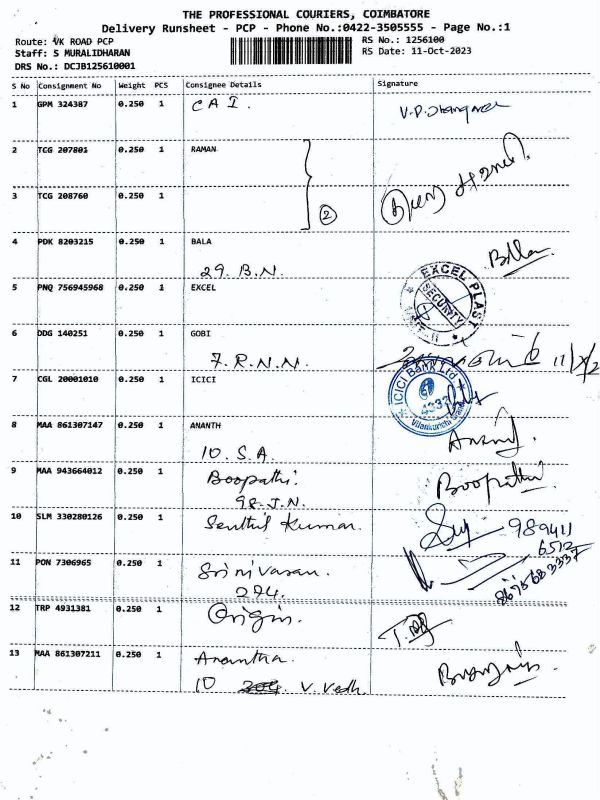 THE PROFESSIONAL COURIERS, COIMBATORE
Delivery Runsheet - PCP - Phone No.:0422-3505555 - Page No.:1
Route: VK ROAD PCP
RS No.: 1256100
Staff: S MURALIDHARAN
RS Date: 11-Oct-2023
DRS No.: DCJB125610001
S No Consignment No Weight PCS Consignee Details Signature
1 GPM 324387 0.250 1 C A I.
2 TCG 207801 0.250 1 RAMAN
3 TCG 208760 0.250 1
2
4 PDK 8203215 0.250 1 BALA
29. B.N.
5 PNQ 756945968 0.250 1 EXCEL
EXCEL PLAST
SECURITY
6 DDG 140251 0.250 1 GOBI
7. R.N.N.
7 CGL 20001010 0.250 1 ICICI
ICICI Bank Ltd
8 MAA 861307147 0.250 1 ANANTH
10. S.A.
Anand.
9 MAA 943664012 0.250 1 Boopathi.
98. J.N.
Boopathi
10 SLM 330280126 0.250 1 Senthil Kumar.
989411
6512
11 PON 7306965 0.250 1 Srinivasan.
294.
8675683337
12 TRP 4931381 0.250 1 Origin.
13 MAA 861307211 0.250 1 Anantha.
10 V. Vedh.